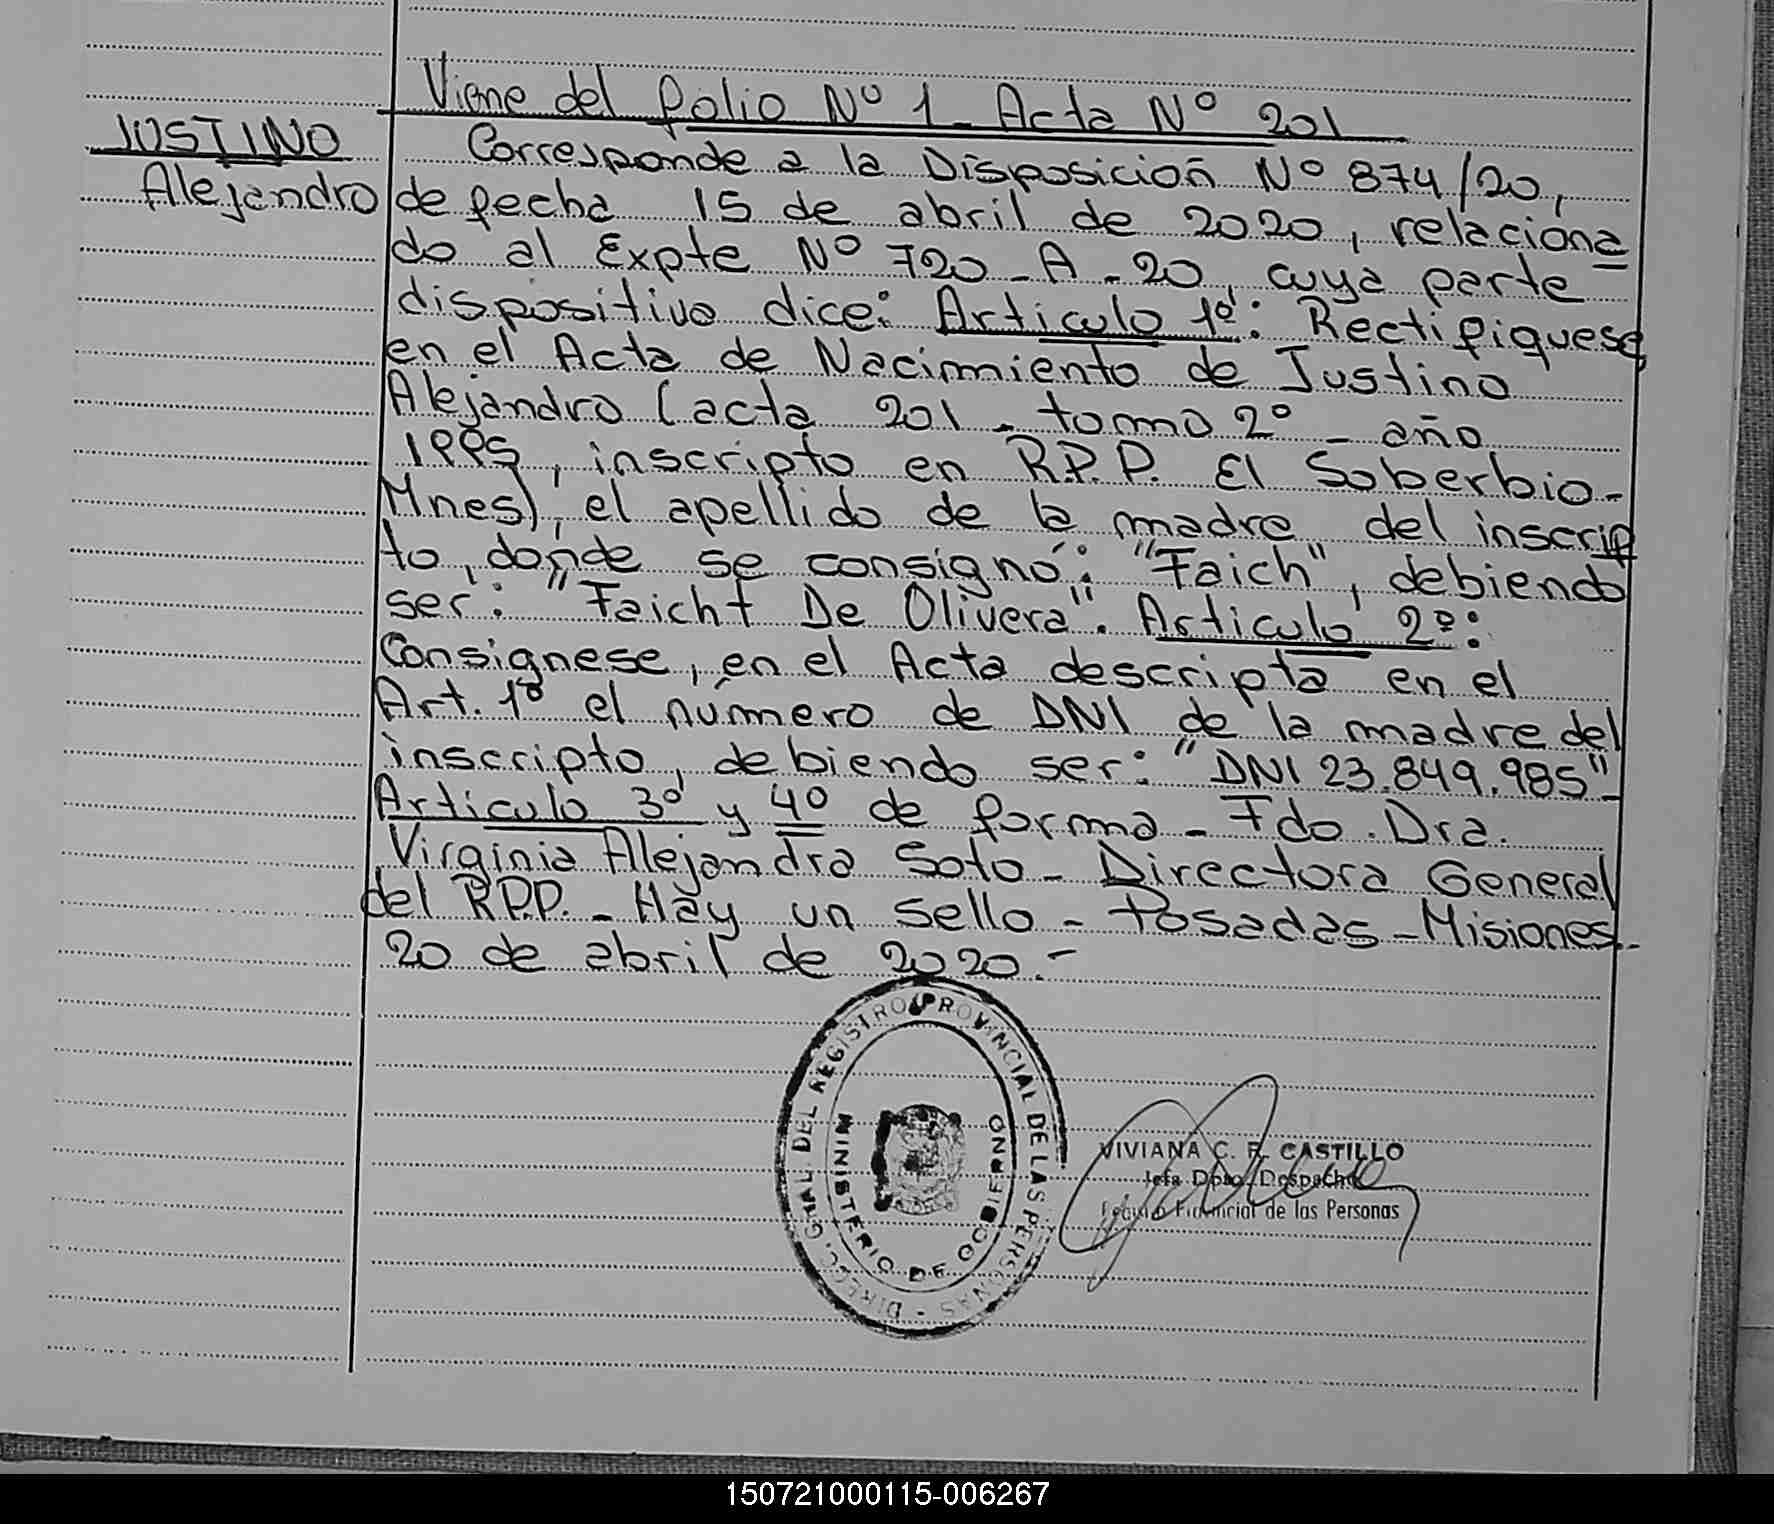 Viene del folio Nº 1 - Acta Nº 201
JUSTINO
Alejandro
Corresponde a la Disposición Nº 874/20,
de fecha 15 de abril de 2020, relaciona
do al Expte Nº 720-A-20, cuya parte
dispositivo dice: Articulo 1º: Rectifiquese,
en el Acta de Nacimiento de Justino
Alejandro (acta 201 - tomo 2º - año
1995, inscripto en R.P.P. El Soberbio-
Mnes), el apellido de la madre del inscrip
to, donde se consignó: "Faich", debiendo
ser: "Feicht De Olivera". Articulo 2º:
Consignese, en el Acta descripta en el
Art. 1º el número de DNI de la madre del
inscripto, debiendo ser: "DNI 23.849.985"-
Articulo 3º y 4º de forma - Fdo. Dra.
Virginia Alejandra Soto - Directora General
del R.P.P. - Hay un sello - Posadas - Misiones-
20 de abril de 2020.-
DIREC. GRAL. DEL REGISTRO PROVINCIAL DE LAS PERSONAS -
MINISTERIO DE GOBIERNO
VIVIANA C. R. CASTILLO
Jefa Dpto. Despacho
Registro Provincial de las Personas
150721000115-006267